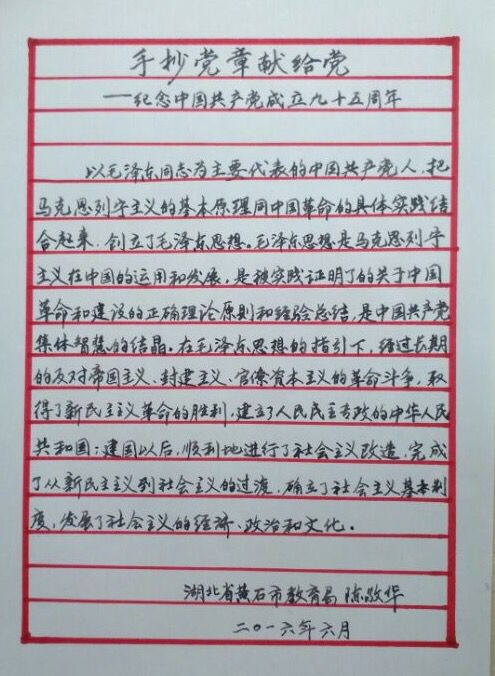 手抄党章献给党
——纪念中国共产党成立九十五周年
以毛泽东同志为主要代表的中国共产党人，把
马克思列宁主义的基本原理同中国革命的具体实践结
合起来，创立了毛泽东思想。毛泽东思想是马克思列宁
主义在中国的运用和发展，是被实践证明了的关于中国
革命和建设的正确理论原则和经验总结，是中国共产党
集体智慧的结晶。在毛泽东思想的指引下，经过长期
的反对帝国主义、封建主义、官僚资本主义的革命斗争，取
得了新民主主义革命的胜利，建立了人民民主专政的中华人民
共和国；建国以后，顺利地进行了社会主义改造，完成
了从新民主主义到社会主义的过渡，确立了社会主义基本制
度，发展了社会主义的经济、政治和文化。
湖北省黄石市教育局 陈敬华
二〇一六年六月